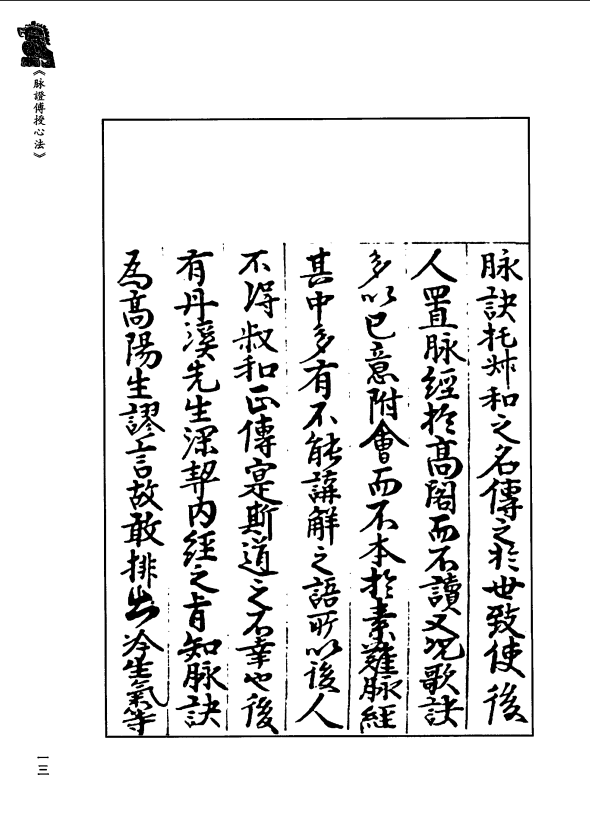 《脉證傳授心法》
脉訣托叔和之名傳之於世致使後
人置脉經於高閣而不讀又况歌訣
多以己意附會而不本於素難脉經
其中多有不能講解之語所以後人
不得叔和正傳寔斯道之不幸也後
有丹溪先生深契内經之旨知脉訣
為高陽生謬言故敢排出冷生氣等
一三